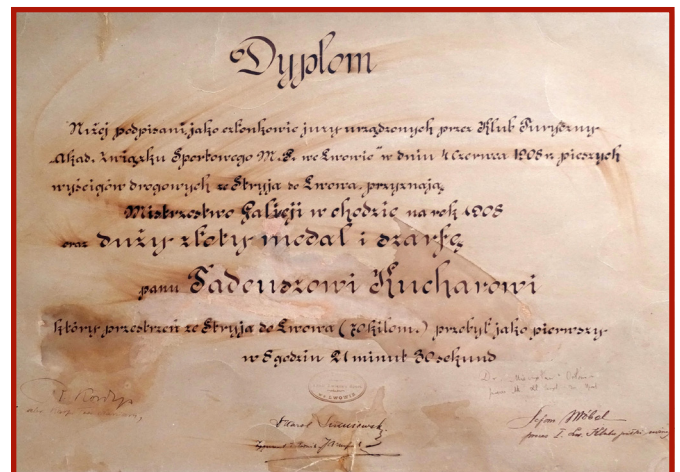 Dyplom
Niżej podpisani, jako członkowie jury urządzonych przez Klub Turystyczny
„Akad. Związku Sportowego M.P. we Lwowie" w dniu 4 Czerwca 1908 r. pieszych
wyścigów drogowych ze Stryja do Lwowa, przyznają
Mistrzostwo Galicji w chodzie na rok 1908
oraz duży złoty medal i szarfę
panu Tadeuszowi Kucharowi
który przestrzeń ze Stryja do Lwowa (70 kilom.) przebył jako pierwszy
w 8 godzin 21 minut 30 sekund
Karol
Stefan Möbel
prezes I. Lw. Klubu